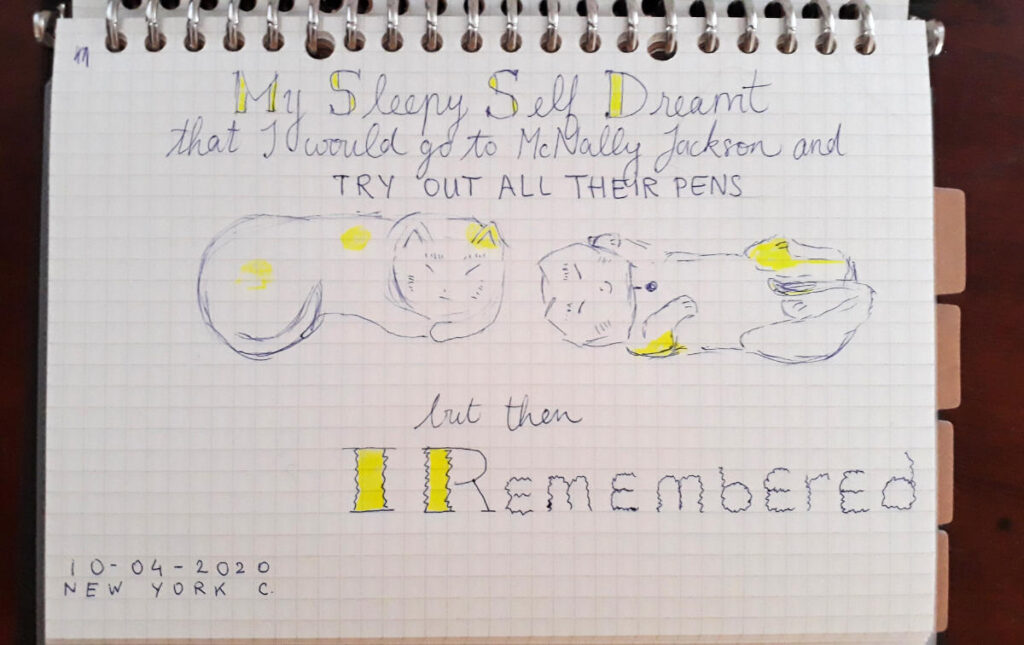 My Sleepy Self Dreamt
that I would go to McNally Jackson and
TRY OUT ALL THEIR PENS
but then
I Remembered
10-04-2020
NEW YORK C.